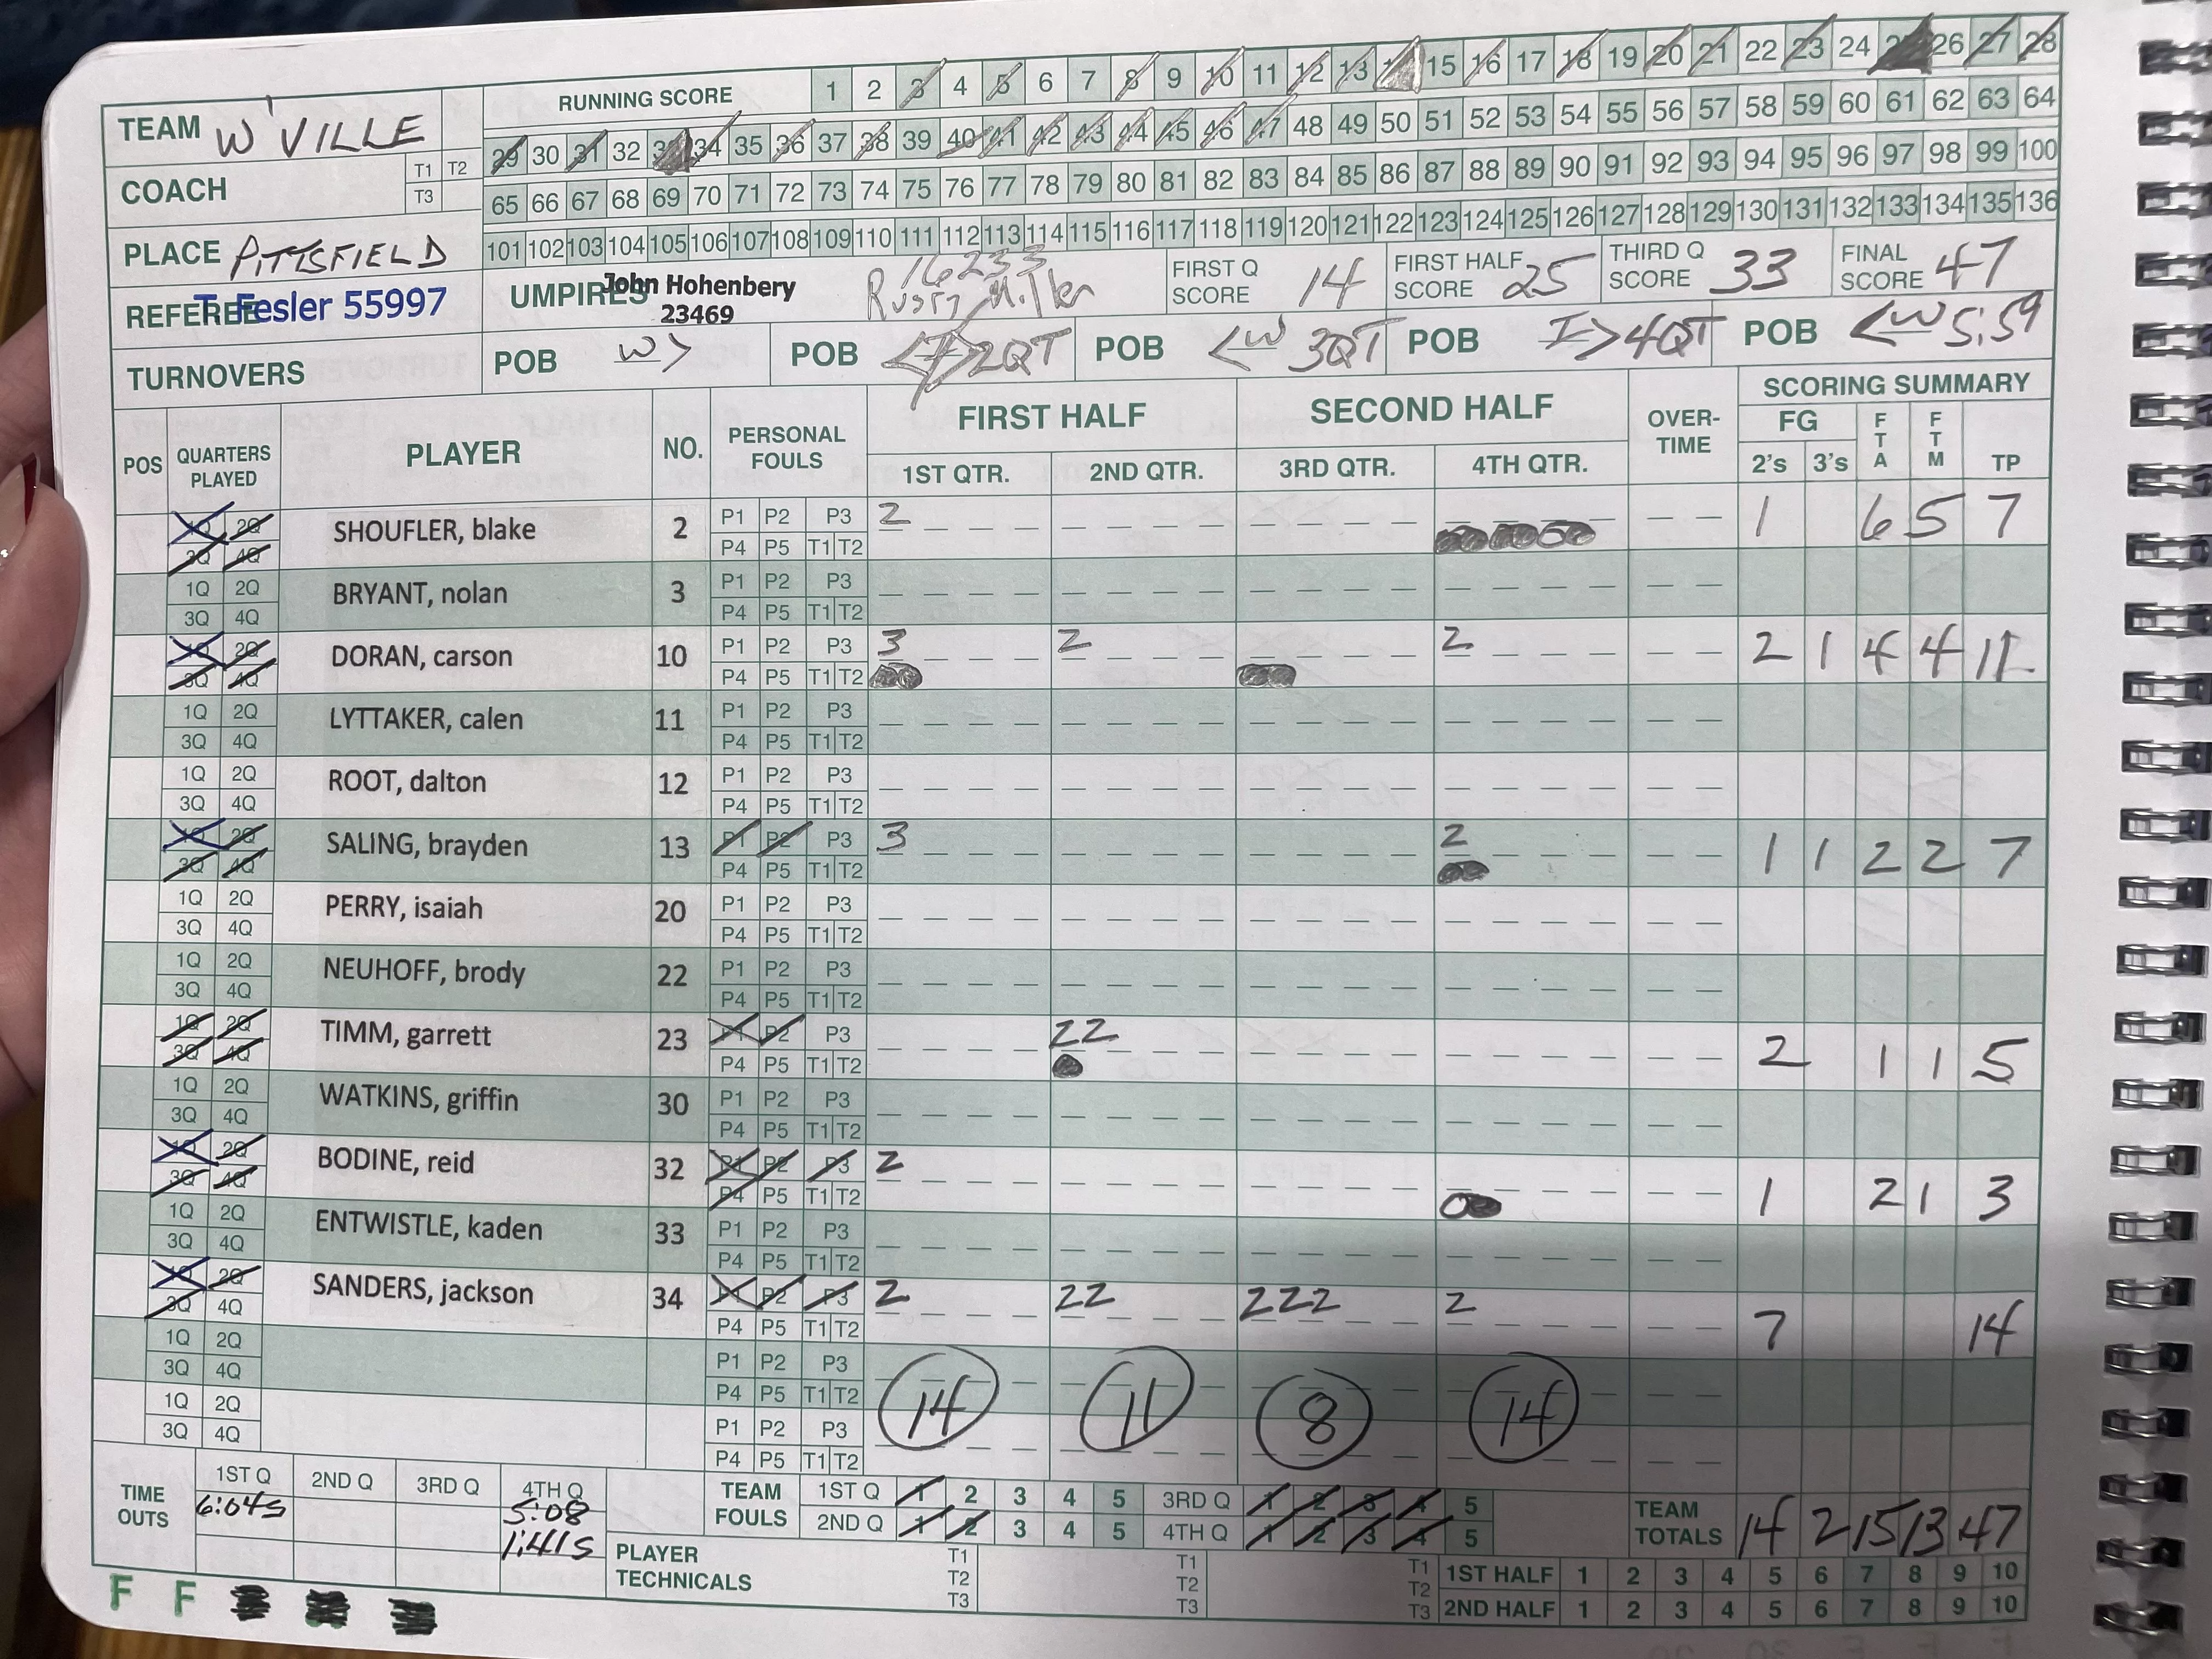 RUNNING SCORE 1 2 3 4 5 6 7 8 9 10 11 12 13 14 15 16 17 18 19 20 21 22 23 24 25 26 27 28
TEAM W'VILLE
29 30 31 32 33 34 35 36 37 38 39 40 41 42 43 44 45 46 47 48 49 50 51 52 53 54 55 56 57 58 59 60 61 62 63 64
COACH T1 T2 T3
65 66 67 68 69 70 71 72 73 74 75 76 77 78 79 80 81 82 83 84 85 86 87 88 89 90 91 92 93 94 95 96 97 98 99 100
101 102 103 104 105 106 107 108 109 110 111 112 113 114 115 116 117 118 119 120 121 122 123 124 125 126 127 128 129 130 131 132 133 134 135 136
PLACE PITTSFIELD
REFEREE T Fesler 55997
UMPIRES John Hohenbery
23469
16233
Rusty Miller
FIRST Q SCORE 14 FIRST HALF SCORE 25 THIRD Q SCORE 33 FINAL SCORE 47
TURNOVERS POB W> POB 2QT POB <W 3QT POB I>4QT POB <W 5:59
POS QUARTERS PLAYED PLAYER NO. PERSONAL FOULS FIRST HALF SECOND HALF OVER-TIME SCORING SUMMARY
FG FTA FTM TP
1ST QTR. 2ND QTR. 3RD QTR. 4TH QTR. 2's 3's
1Q 2Q SHOUFLER, blake 2 P1 P2 P3 2 1 6 5 7
3Q 4Q P4 P5 T1 T2
1Q 2Q BRYANT, nolan 3 P1 P2 P3
3Q 4Q P4 P5 T1 T2
1Q 2Q DORAN, carson 10 P1 P2 P3 3 2 2 2 1 4 4 11
3Q 4Q P4 P5 T1 T2
1Q 2Q LYTTAKER, calen 11 P1 P2 P3
3Q 4Q P4 P5 T1 T2
1Q 2Q ROOT, dalton 12 P1 P2 P3
3Q 4Q P4 P5 T1 T2
1Q 2Q SALING, brayden 13 P1 P2 P3 3 2 1 1 2 2 7
3Q 4Q P4 P5 T1 T2
1Q 2Q PERRY, isaiah 20 P1 P2 P3
3Q 4Q P4 P5 T1 T2
1Q 2Q NEUHOFF, brody 22 P1 P2 P3
3Q 4Q P4 P5 T1 T2
1Q 2Q TIMM, garrett 23 P1 P2 P3 22 2 1 1 5
3Q 4Q P4 P5 T1 T2
1Q 2Q WATKINS, griffin 30 P1 P2 P3
3Q 4Q P4 P5 T1 T2
1Q 2Q BODINE, reid 32 P1 P2 P3 2 1 2 1 3
3Q 4Q P4 P5 T1 T2
1Q 2Q ENTWISTLE, kaden 33 P1 P2 P3
3Q 4Q P4 P5 T1 T2
1Q 2Q SANDERS, jackson 34 P1 P2 P3 2 22 222 2 7 14
3Q 4Q P4 P5 T1 T2
1Q 2Q P1 P2 P3
3Q 4Q P4 P5 T1 T2
14 11 8 14
1Q 2Q P1 P2 P3
3Q 4Q P4 P5 T1 T2
TIME OUTS 1ST Q 2ND Q 3RD Q 4TH Q
6:04s 5:08
1:41s
TEAM FOULS 1ST Q 1 2 3 4 5 3RD Q 1 2 3 4 5
2ND Q 1 2 3 4 5 4TH Q 1 2 3 4 5
TEAM TOTALS 14 2 15 13 47
PLAYER TECHNICALS T1 T2 T3 T1 T2 T3 T1 T2 T3
1ST HALF 1 2 3 4 5 6 7 8 9 10
2ND HALF 1 2 3 4 5 6 7 8 9 10
F F